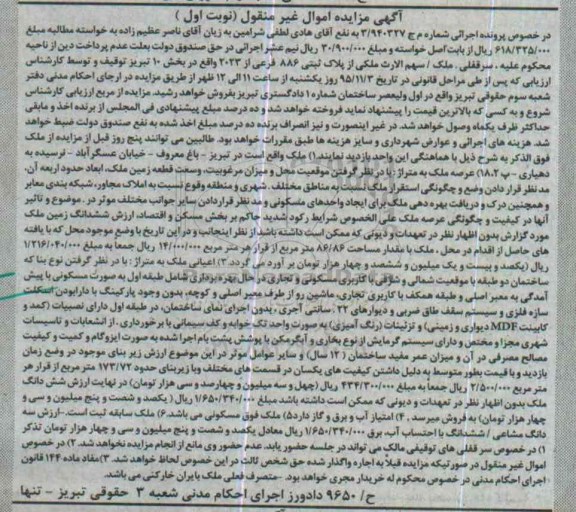 آگهی مزایده اموال غیر منقول (نوبت اول )
در خصوص پرونده اجرائی شماره م ج ۳/۹۴۰۳۲۷ به نفع آقای هادی لطفی شرامین به زیان آقای ناصر عظیم زاده به خواسته مطالبه مبلغ
۶۱۸/۳۲۵/۰۰۰ ریال از بابت اصل خواسته و مبلغ ۳۰/۹۰۰/۰۰۰ ریال نیم عشر اجرائی در حق صندوق دولت بعلت عدم پرداخت دین از ناحیه
محکوم علیه ، سرقفلی . ملک / سهم الارث ملکی از پلاک ثبتی ۸۸۶ فرعی از ۲۰۲۳ واقع در بخش ۱۰ تبریز توقیف و توسط کارشناس
ارزیابی که پس از طی مراحل قانونی در تاریخ ۹۵/۱۱/۳ روز یکشنبه از ساعت ۱۱ الی ۱۲ ظهر از طریق مزایده در ارجای احکام مدنی دفتر
شعبه سوم حقوقی تبریز واقع در اول ولیعصر ساختمان شماره ۱ دادگستری تبریز بفروش خواهد رسید. مزایده از مربع ارزیابی کارشناس
شروع و به کسی که بالاترین قیمت را پیشنهاد نماید فروخته خواهد شد و ده درصد مبلغ پیشنهادی فی المجلس از برنده اخذ و مابقی
حداکثر ظرف یکماه وصول خواهد شد. در غیر اینصورت و نیز انصراف برنده ده درصد مبلغ اخذ شده به نفع صندوق دولت ضبط خواهد
شد. هزینه های اجرائی و عوارض شهرداری و سایز هزینه ها طبق مقررات خواهد بود. طالبین می توانند پنج روز قبل از مزایده از ملک
فوق الذکر به شرح ذیل با هماهنگی این واحد بازدید نمایند.۱) ملک واقع است در تبریز - باغ معروف - خیابان عسگرآباد - نرسیده به
دهیاری - پ ۱۸.۲) عرصه ملک به متراژ : با در نظر گرفتن موقعیت محل و میزان مرغوبیت، وسعت قطعه زمین ملک، ابعاد حدود اربعه آن.
مد نظر قرار دادن وضع و چگونگی استقرار ملک نسبت به مناطق مختلف . شهری و منطقه وقوع نسبت به املاک مجاور، شبکه بندی معابر
و همچنین درک و دریافت بهره دهی ملک برای ایجاد واحدهای مسکونی و مد نظر قراردادن سایر جوانب مختلف موثر در . موضوع و تاثیر
آنها در کیفیت و چگونگی عرصه ملک علی الخصوص شرایط رکود شدید حاکم بر بخش مسکن و اقتصاد، ارزش ششدانگ زمین ملک
مورد گزارش بدون اظهار نظر در تعهدات و دیونی که ممکن است داشته باشد از نظر اینجانب و در این تاریخ با وضع موجود محل که با یافته
های حاصل از اقدام در محل ، ملک با مقدار مساحت ۸۶/۸۶ متر مربع از قرار هر متر مربع ۱۴/۰۰۰/۰۰۰ ریال جمعا به مبلغ ۱/۲۱۶/۰۴۰/۰۰۰
ریال (یکصد و بیست و یک میلیون و ششصد و چهار هزار تومان بر آورد می گردد.۳) اعیانی ملک به متراژ : با در نظر گرفتن نوع بنا که
ساختمان دو طبقه با موقعیت شمالی و شرقی با کاربری مسکونی و تجاری در حال بهره برداری شامل طبقه اول به صورت مسکونی با پیش
آمدگی به معبر اصلی و طبقه همکف با کاربری تجاری، ماشین رو از طرف معبر اصلی و کوچه، بدون وجود پارکینگ با دارابودن اسکلت
سازه فلزی و سیستم سقف طاق ضربی و دیوارهای ۲۲ . سانتی آجری . بدون اجرای نمای ساختمان، در طبقه اول دارای نصبیات (کمد و
کابینت MDF دیواری و زمینی) و تزئینات (رنگ آمیزی) به صورت واحد تک خوابه و کف سیمانی با برخورداری . از انشعابات و تاسیسات
شهری مجزا و مختص و دارای سیستم گرمایش از نوع بخاری و آبگرمکن با پوشش پشت بام اجرا شده به صورت ایزوگام و کمیت و کیفیت
مصالح مصرفی در آن و میزان عمر مفید ساختمان ( ۱۲ سال ) و سایر عوامل موثر در این موضوع ارزش زیر بنای موجود در وضع زمان
بازدید و با قیمت بطور متوسط به دلیل داشتن کیفیت های یکسان در قسمت های مختلف وبا زیربنای حدود ۱۷۳/۷۲ متر مربع از قرار هر
متر مربع ۲/۵۰۰/۰۰۰ ریال جمعاً به مبلغ ۴۳۴/۳۰۰/۰۰۰ ریال (چهل و سه میلیون و چهارصد و سی هزار تومان) در نهایت ارزش شش دانگ
ملک بدون اظهار نظر در تعهدات و دیونی که ممکن است داشته باشد مبلغ ۱/۶۵۰/۳۴۰/۰۰۰ ریال ( یکصد و شصت و پنج میلیون و سی و
چهار هزار تومان) به فروش میرسد . ۴) امتیاز آب و برق و گاز دارد۵) ملک فوق مسکونی می باشد.۶) ملک سابقه ثبت است. -ارزش سه
دانگ مشاعی / ششدانگ با احتساب آب، برق ۱/۶۵۰/۳۴۰/۰۰۰ ریال معادل یکصد و شصت و پنج میلیون و سی و چهار هزار تومان تذکر
۱) در خصوص سر قفلی های توقیفی مالک می تواند در جلسه حضور یابد. عدم حضور وی مانع از انجام مزایده نخواهد شد. ۲) در خصوص
اموال غیر منقول در صورتیکه مزایده قبلاً به اجاره واگذار شده حق شخص ثالث در این خصوص لحاظ خواهد شد. ۳) مفاد ماده ۱۴۴ قانون
اجرای احکام مدنی در خصوص محکوم له خریدار مجری خواهد بود. -متصرف فعلی ملک بایران خارکنی می باشد.
ح/ ۹۶۵۰ دادورز اجرای احکام مدنی شعبه ۳ حقوقی تبریز - تنها